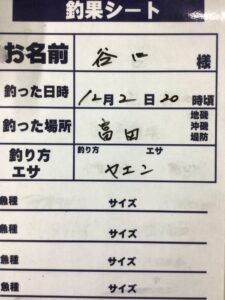 釣果シート
お名前 谷口 様
釣った日時 12月2日20時頃
釣った場所 富田 地磯 沖磯 堤防
釣り方 エサ 釣り方 エサ ヤエン
魚種 サイズ
魚種 サイズ
魚種 サイズ
魚種 サイズ